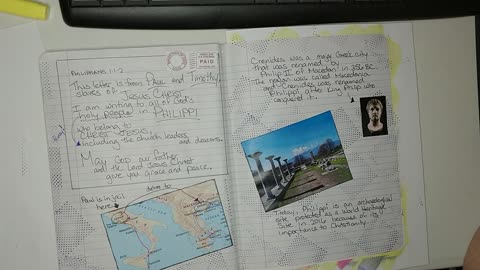 PHILIPPIANS 1:1-2
PAID
This letter is from PAUL and Timothy
slaves of JESUS CHRIST
I am writing to all of God's
holy people in PHILIPPI
who belong to
CHRIST JESUS,
including the church leaders
and deacons.
MAY GOD our FATHER
and the LORD JESUS CHRIST
give you grace and peace.
Paul is in jail
here
letter to
Crenides was a major Greek city
that was renamed by
Philip II of Macedon in 356 BC.
The region was called Macedonia
and Crenides was renamed
Philippi after King Philip who
conquered it.
Today, Philippi is an archaeological
site protected as a World Heritage
Site in 2016 because of its
importance to Christianity.